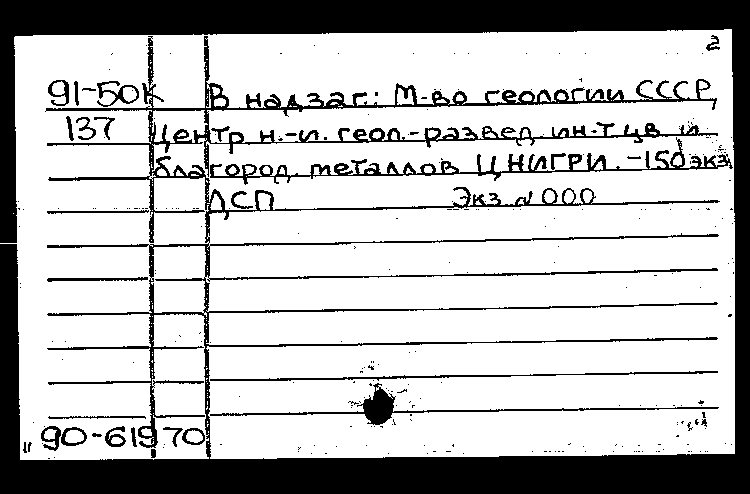 2
91-50к В надзаг.: М-во геологии СССР,
137 Центр н.-и. геол.-развед. ин-т цв. и
благород. металлов ЦНИГРИ. -150 экз.
ДСП Экз. N 000
90-61970